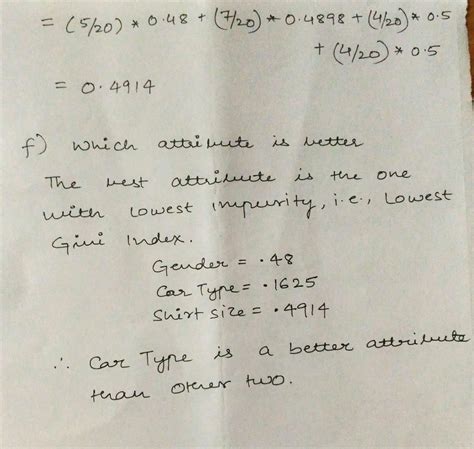 = (5/20) * 0.48 + (7/20) * 0.4898 + (4/20) * 0.5
+ (4/20) * 0.5
= 0.4914
f) Which attribute is better
The best attribute is the one
with lowest impurity, i.e., Lowest
Gini Index.
Gender = .48
Car Type = .1625
Shirt size = .4914
∴ Car Type is a better attribute
than other two.